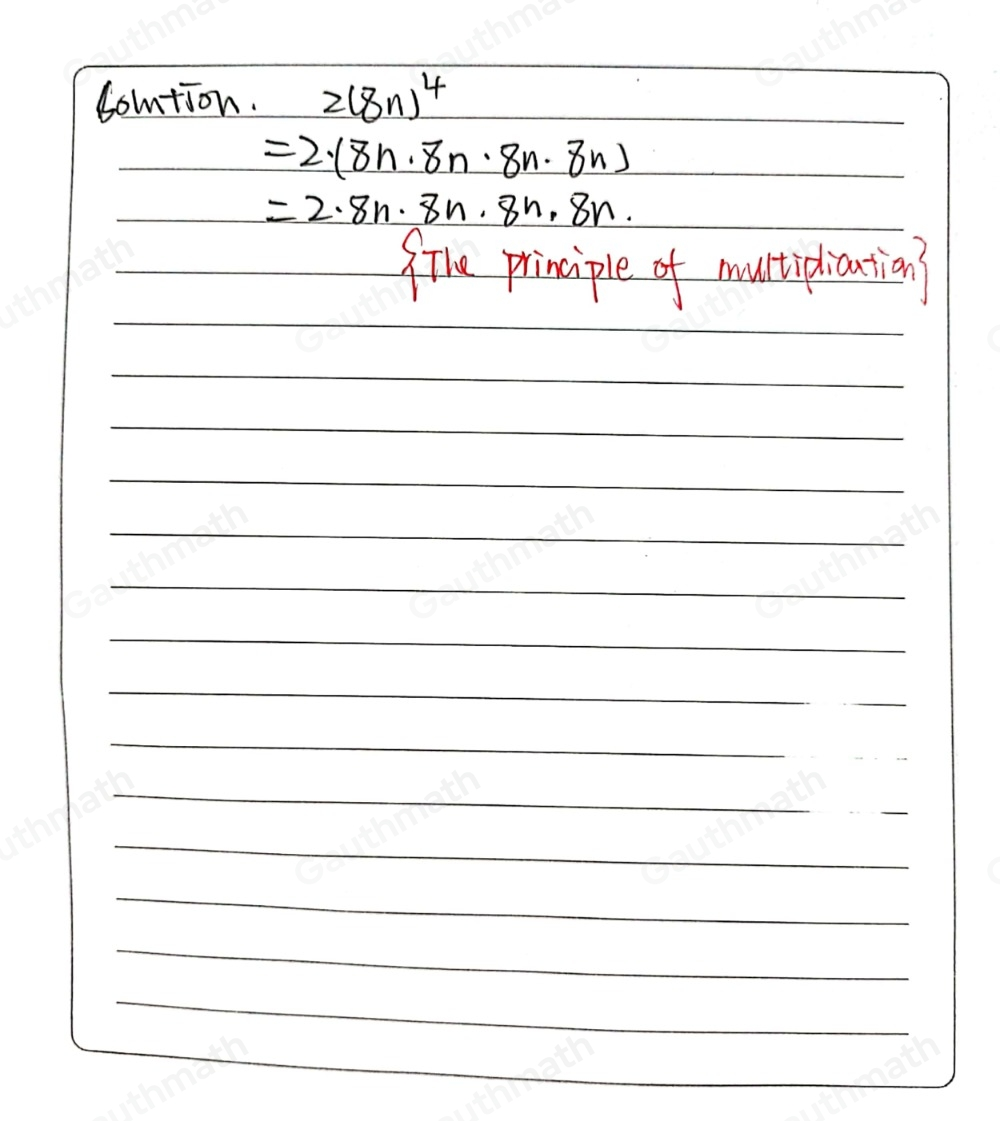 Solution. 2(8n)⁴
=2·(8n·8n·8n·8n)
=2·8n·8n·8n·8n.
{The principle of multiplication}
Gauthmath